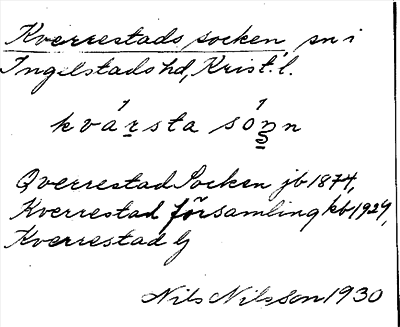 Kverrestads socken sn i
Ingelstads hd, Krist. l.
kvársta són
Qverrestad Socken jb 1874,
Kverrestad församling kb 1929,
Kverrestad
Nils Nilsson 1930